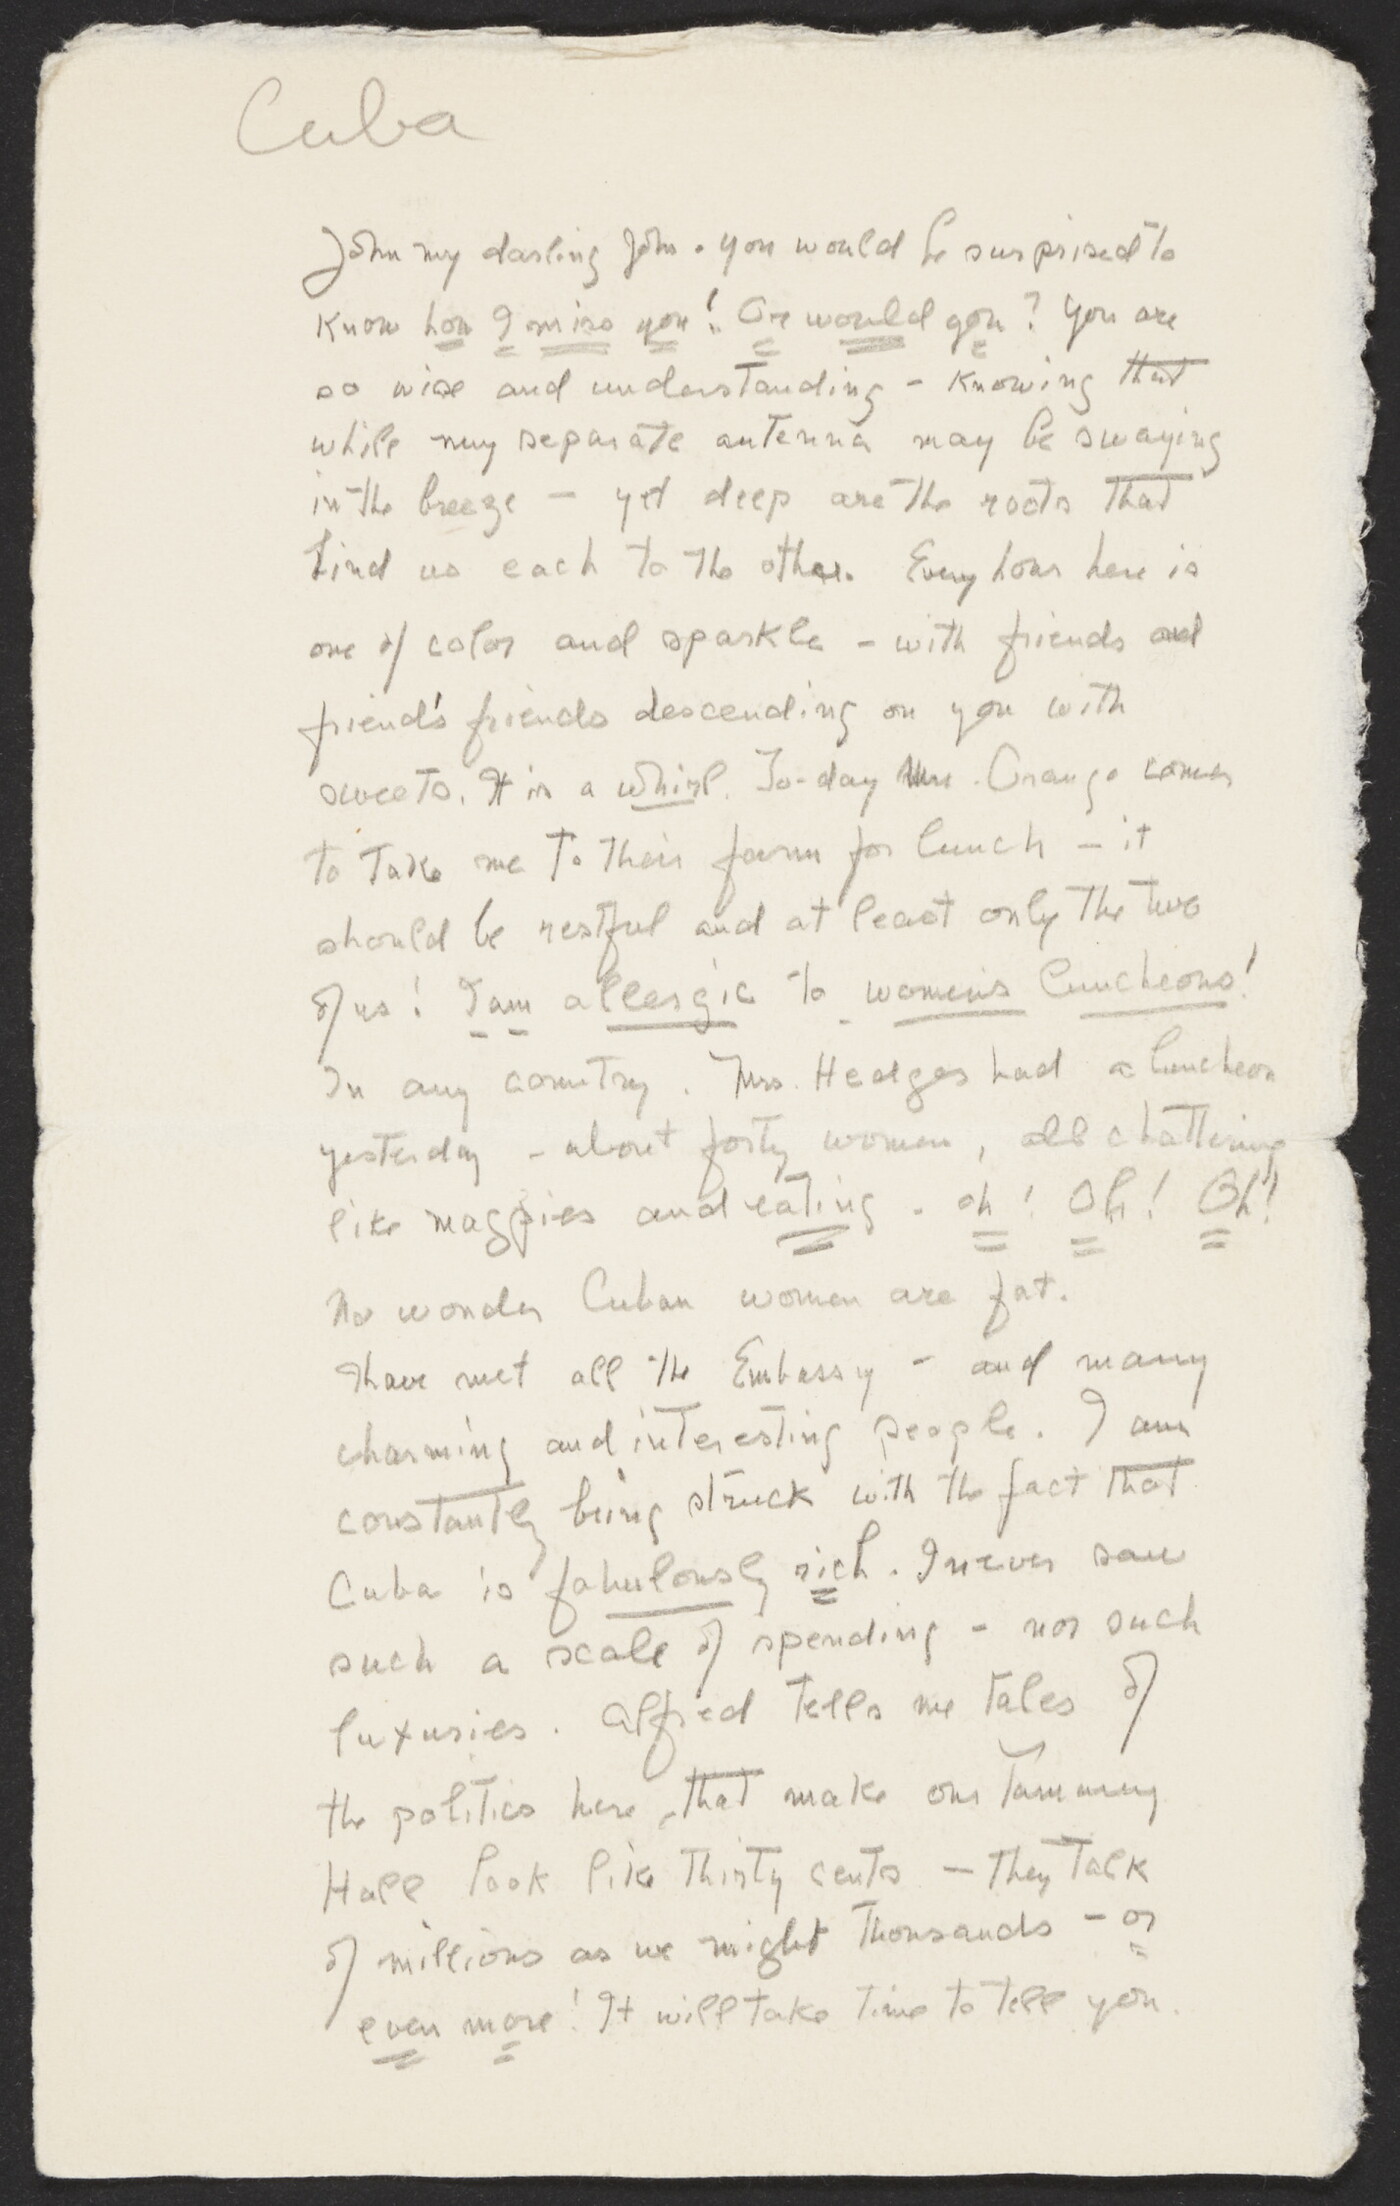 Cuba
John my darling John. You would be surprised to
know how I miss you! Or would you? You are
so wise and understanding - knowing that
while my separate antenna may be swaying
in the breeze - yet deep are the roots that
bind us each to the other. Every hour here is
one of color and sparkle - with friends and
friend's friends descending on you with
sweets. It is a whirl. To-day Mrs. Orange comes
to take me to their farm for lunch - it
should be restful and at least only the two
of us! I am allergic to women's luncheons!
In any country. Mrs. Hedges had a luncheon
yesterday - about forty women, all chattering
like magpies and eating. oh! Oh! Oh!
No wonder Cuban women are fat.
I have met all the Embassy - and many
charming and interesting people. I am
constantly being struck with the fact that
Cuba is fabulously rich. I never saw
such a scale of spending - nor such
luxuries. Alfred tells me tales of
the politics here, that make our Tammany
Hall look like thirty cents - they talk
of millions as we might thousands - or
even more! It will take time to tell you.